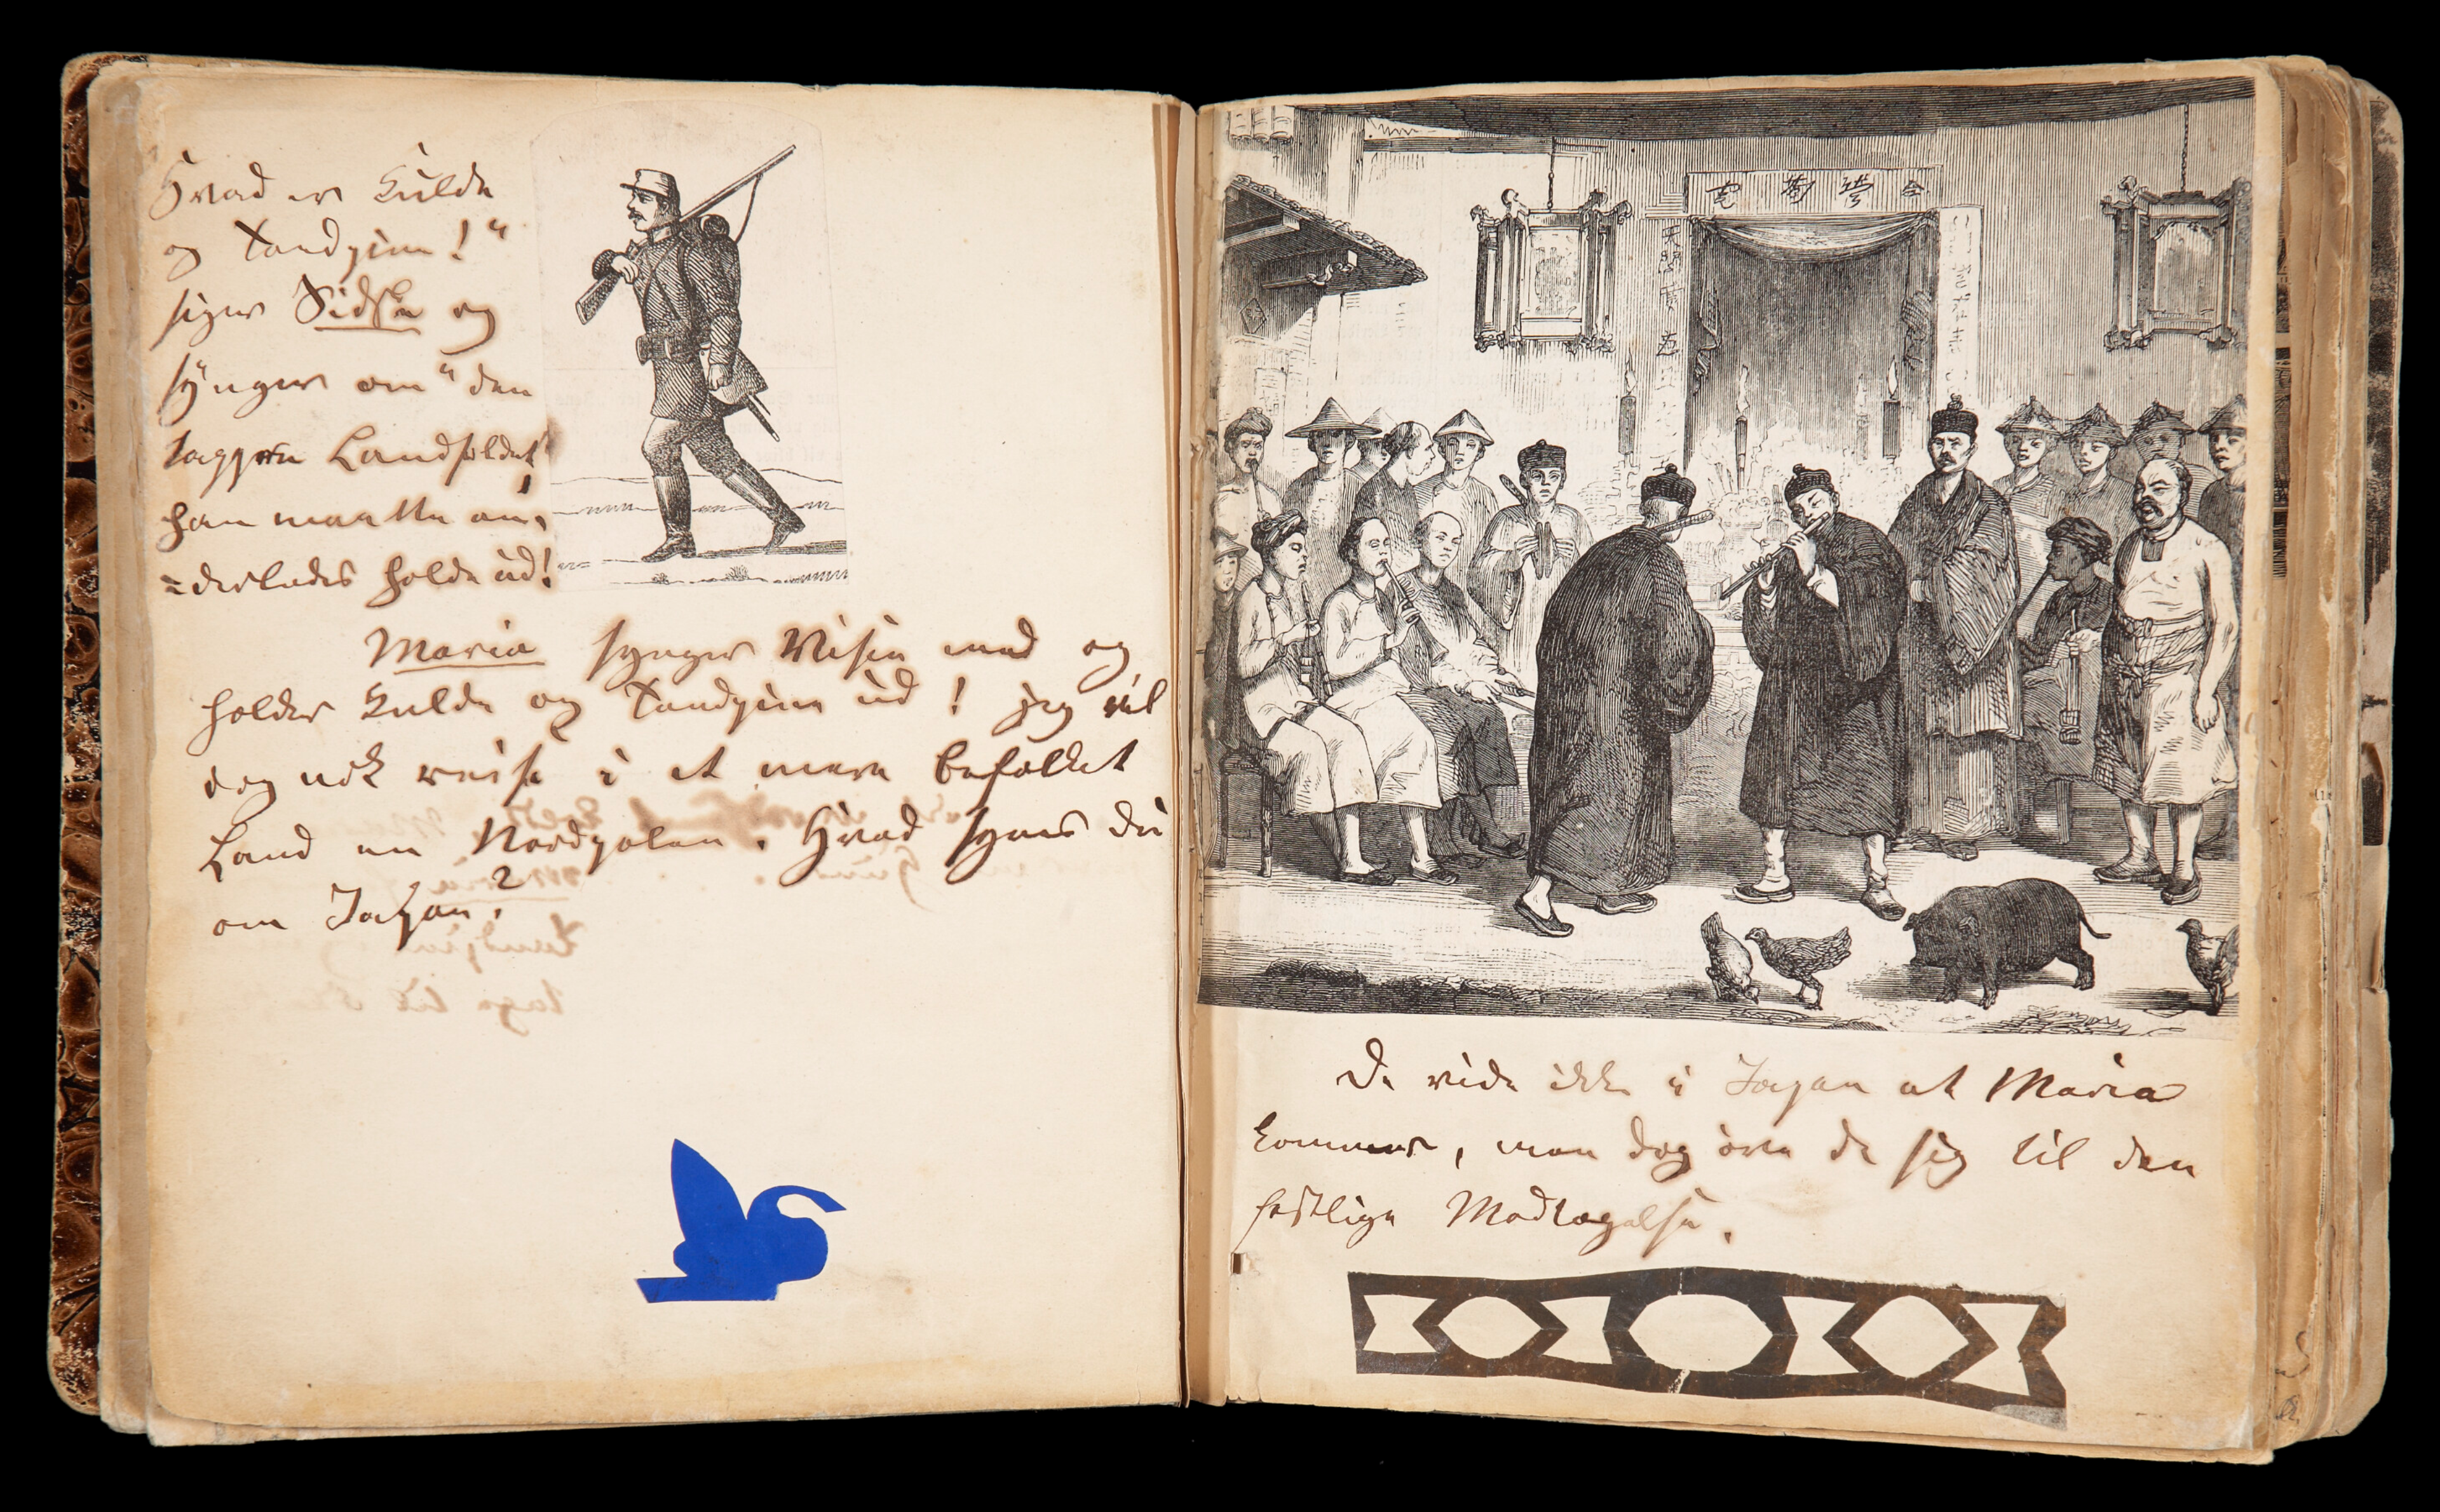 Hvad er Kulde
og Tandpine!"
siger Sidse og
synger om "den
tappre Landsoldat"
han maatte an,
=derledes holde ud!
Maria synger Visen med og
holder Kulde og Tandpine ud! jeg vil
dog nok reise i et mere befolket
Land en Nordpolen. Hvad synes du
om Japan?
De vide ikke i Japan at Maria
kommer, men dog øve de sig til den
festlige Modtagelse.